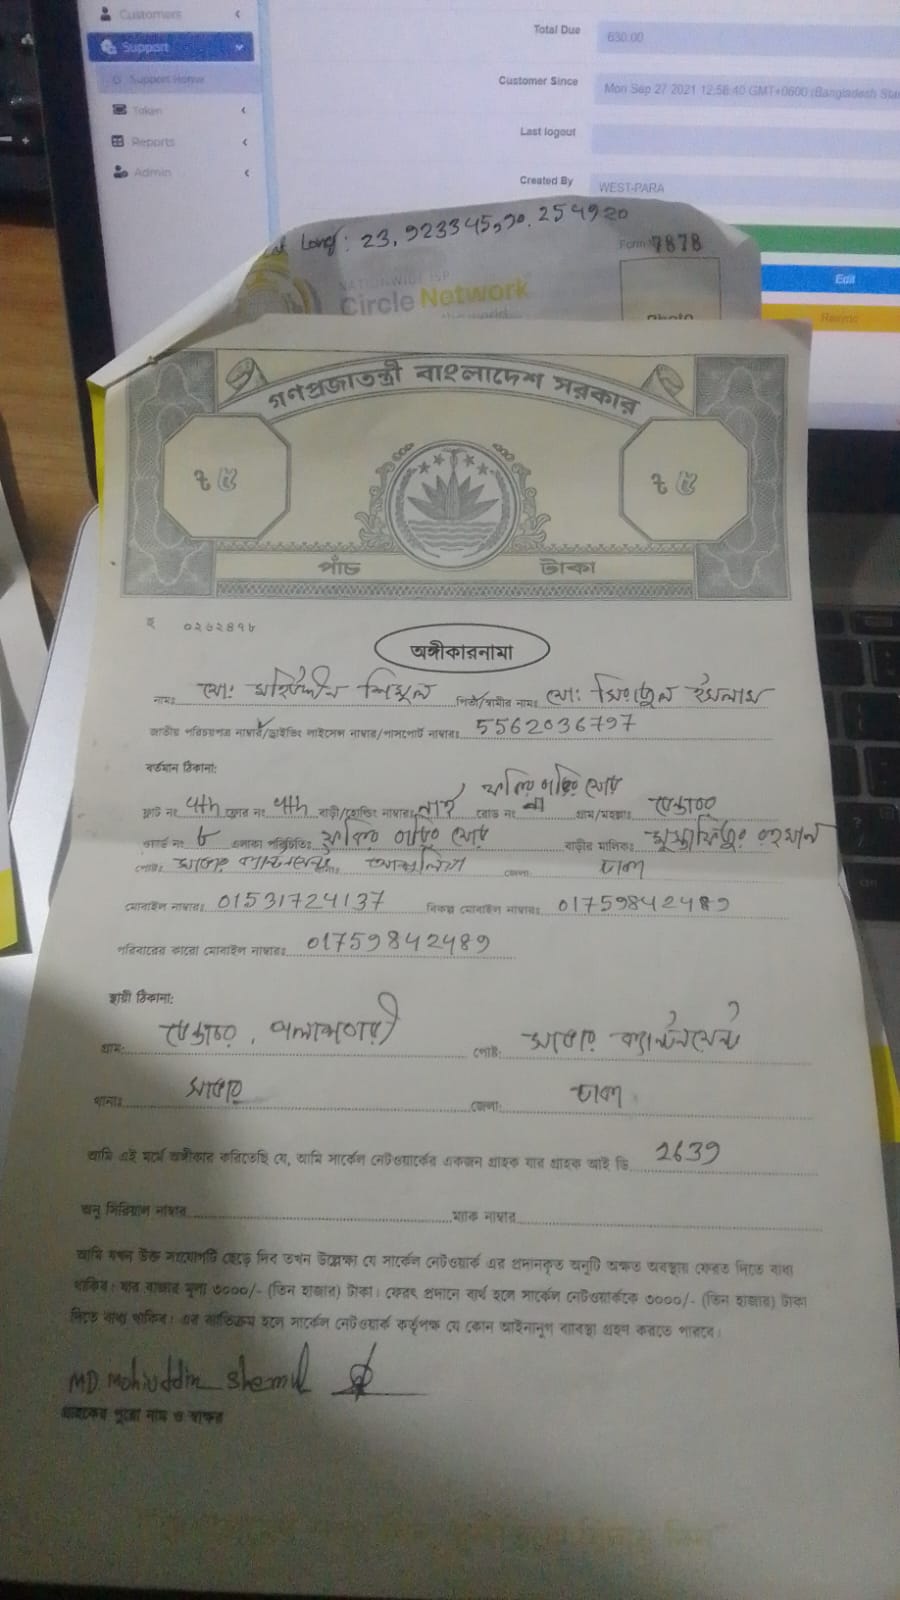 Customers
Support
Support Home
Token
Reports
Admin
Total Due 630.00
Customer Since Mon Sep 27 2021 12:56:40 GMT+0600 (Bangladesh Sta
Last logout
Created By WEST-PARA
Edit
Long: 23.923345,90.254920
Form 7878
NATIONWIDE ISP
Circle Network
the world
Photo
গণপ্রজাতন্ত্রী বাংলাদেশ সরকার
৳ ৫ ৳ ৫
পাঁচ টাকা
০২৬২৪৭৮
অঙ্গীকারনামা
নামঃ মোঃ মহিউদ্দীন শিমুল পিতা/স্বামীর নামঃ মোঃ সিরাজুল ইসলাম
জাতীয় পরিচয়পত্র নাম্বার/ড্রাইভিং লাইসেন্স নাম্বার/পাসপোর্ট নাম্বারঃ 5562036797
বর্তমান ঠিকানা:
ফ্লাট নং 4th ফ্লোর নং 4th বাড়ী/হোল্ডিং নাম্বারঃ নাই রোড নং না গ্রাম/মহল্লাঃ
ওয়ার্ড নং ৮ এলাকা পরিচিতিঃ বাড়ীর মালিকঃ মুস্তাফিজুর রহমান
পোষ্টঃ সাভার ক্যান্টনমেন্ট আশুলিয়া জেলা: ঢাকা
মোবাইল নাম্বারঃ 01531724137 বিকল্প মোবাইল নাম্বারঃ 01759842489
পরিবারের কারো মোবাইল নাম্বারঃ 01759842489
স্থায়ী ঠিকানা:
গ্রাম: পোষ্ট: সাভার ক্যান্টনমেন্ট
থানাঃ সাভার জেলা: ঢাকা
আমি এই মর্মে অঙ্গীকার করিতেছি যে, আমি সার্কেল নেটওয়ার্কের একজন গ্রাহক যার গ্রাহক আই ডি 2639
অনু সিরিয়াল নাম্বার ম্যাক নাম্বার
আমি যখন উক্ত সংযোগটি ছেড়ে দিব তখন উল্লেক্ষ্য যে সার্কেল নেটওয়ার্ক এর প্রদানকৃত অনুটি অক্ষত অবস্থায় ফেরত দিতে বাধ্য
থাকিব। যার বাজার মূল্য ৩০০০/- (তিন হাজার) টাকা। ফেরৎ প্রদানে ব্যর্থ হলে সার্কেল নেটওয়ার্ককে ৩০০০/- (তিন হাজার) টাকা
দিতে বাধ্য থাকিব। এর ব্যতিক্রম হলে সার্কেল নেটওয়ার্ক কর্তৃপক্ষ যে কোন আইনানুগ ব্যাবস্থা গ্রহণ করতে পারবে।
MD. Mohiuddin Shemul
গ্রাহকের পুরো নাম ও স্বাক্ষর